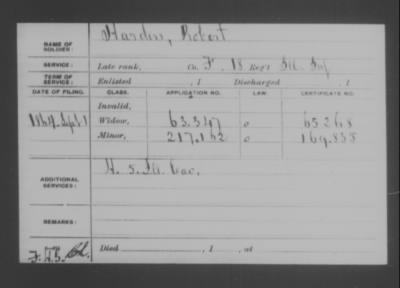 NAME OF SOLDIER: Hardin, Robert
SERVICE: Late rank, Co. F, 18 Reg't Ill. Inf
TERM OF SERVICE: Enlisted , 1 Discharged , 1
DATE OF FILING. CLASS. APPLICATION NO. LAW. CERTIFICATE NO.
Invalid,
1864, Sept. 1 Widow, 63.347 65268
Minor, 217.152 169.835
ADDITIONAL SERVICES: Ill. Cav.
REMARKS:
Died , 1 , at